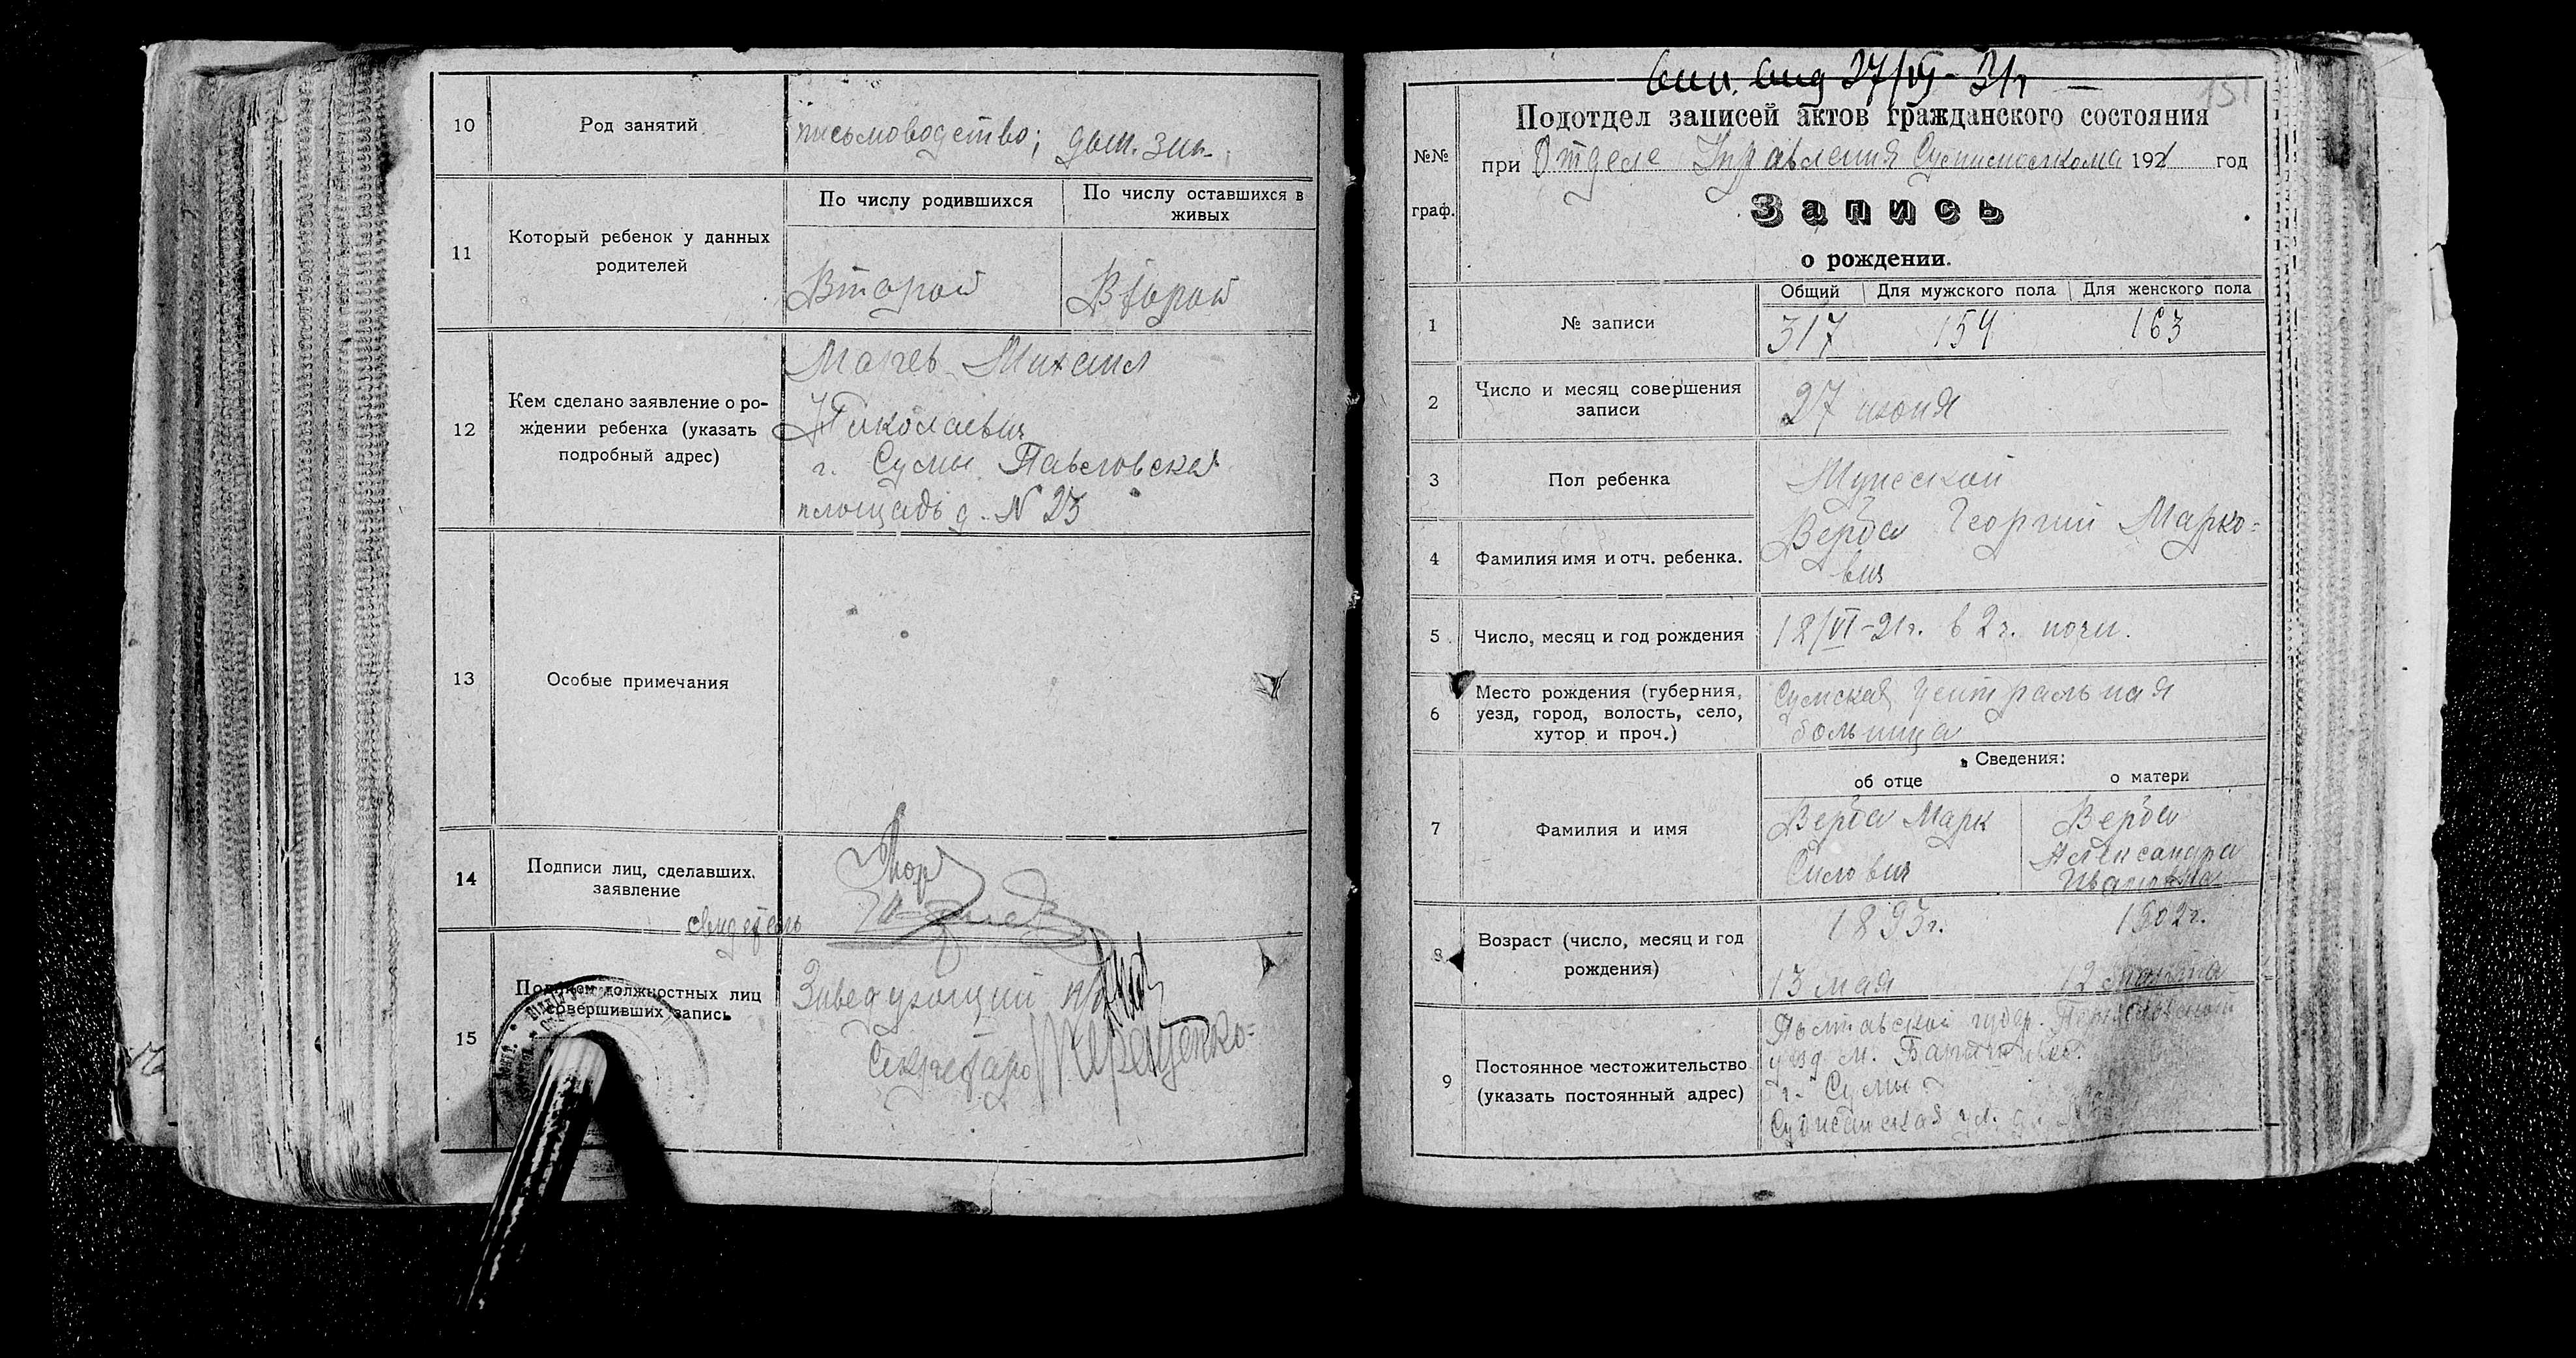 10
Род занятий
письмоводство; дом. зан.
11
Который ребенок у данных
родителей
По числу родившихся
По числу оставшихся в
живых
Второй
Второй
12
Кем сделано заявление о ро-
ждении ребенка (указать
подробный адрес)
Михаил
Николаевич
г. Сумы Павловская
площадь д. № 23
13
Особые примечания
14
Подписи лиц, сделавших
заявление
свидетель
15
должностных лиц
совершивших запись
Заведующий
Секретарь
151
27/VI-31г
Подотдел записей актов гражданского состояния
№№
граф.
при Отделе Управления 1921 год
Запись
о рождении.
Общий
Для мужского пола
Для женского пола
1
№ записи
317
154
163
2
Число и месяц совершения
записи
27 июня
3
Пол ребенка
Мужской
4
Фамилия имя и отч. ребенка.
Верба Георгий Марко=
вич
5
Число, месяц и год рождения
12/VI-21г. в 2 ч. ночи.
6
Место рождения (губерния,
уезд, город, волость, село,
хутор и проч.)
Сумская центральная
больница
Сведения:
об отце
о матери
7
Фамилия и имя
Верба Марк
Силович
Верба
Александра
Ивановна
8
Возраст (число, месяц и год
рождения)
1893г.
13 мая
1902г.
12 марта
9
Постоянное местожительство
(указать постоянный адрес)
Полтавской губер.
уезд м.
г. Сумы
ул. д.